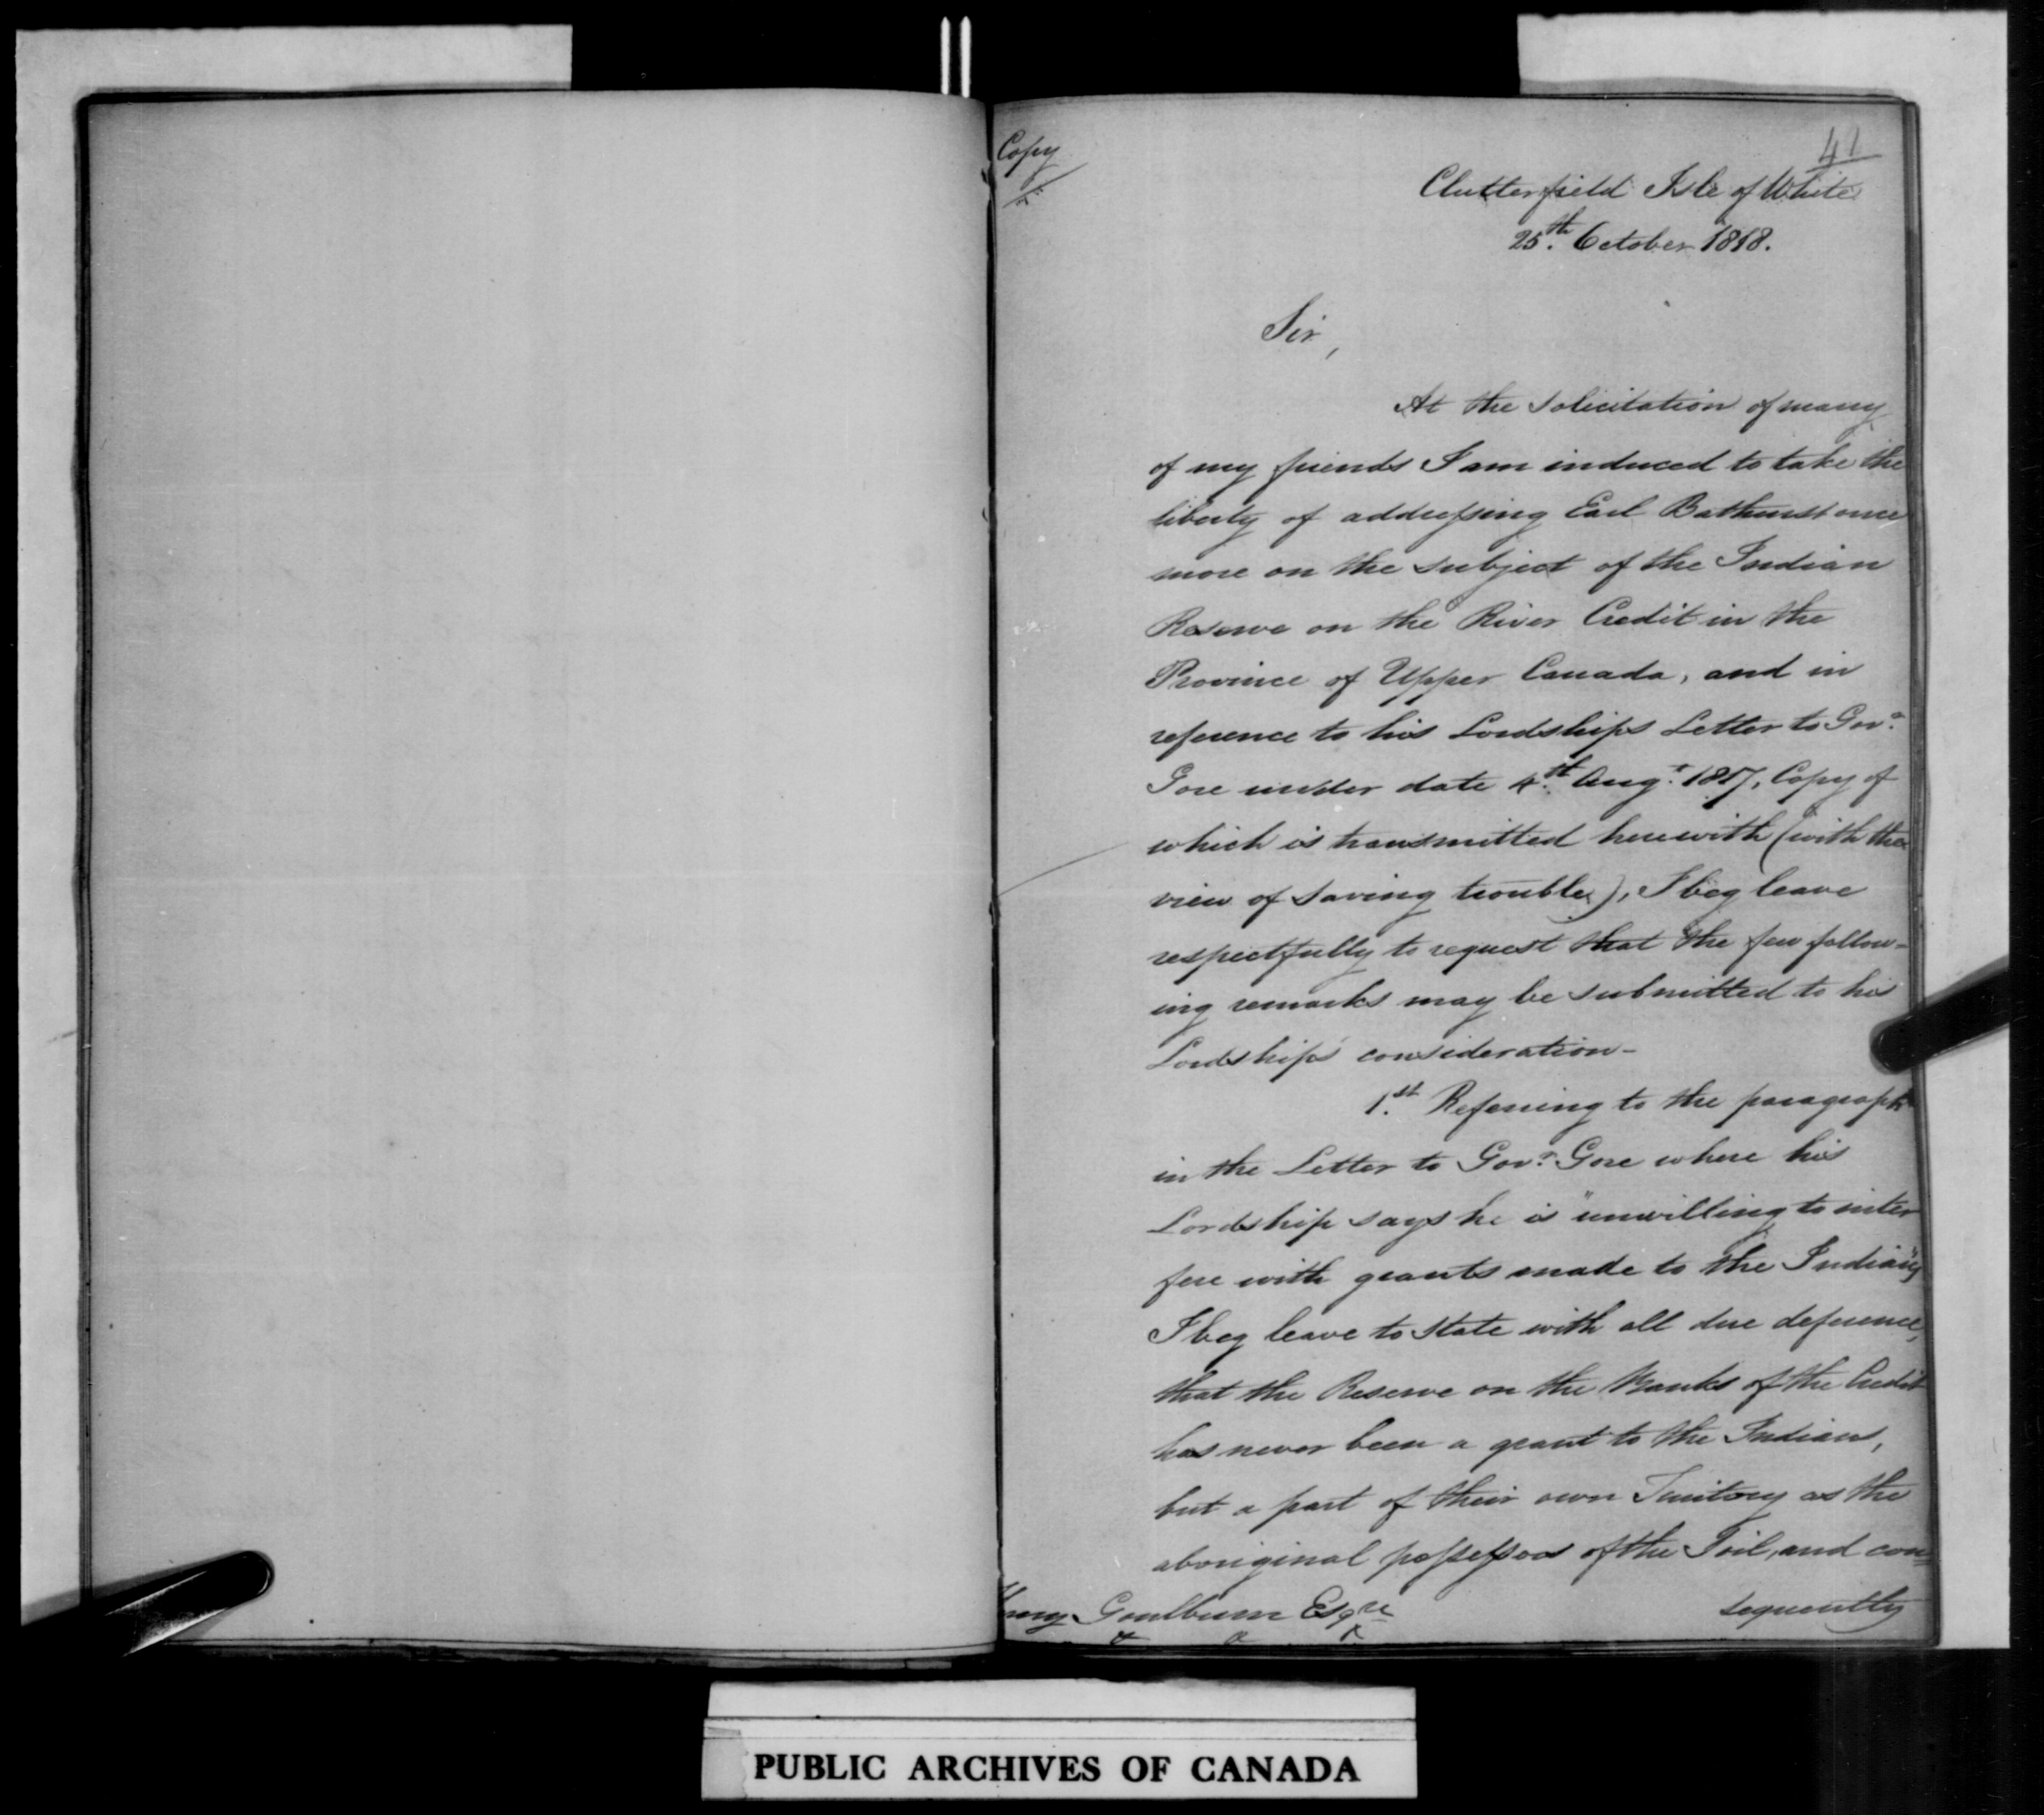 Copy
41
Clutterfield Isle of White
25th. October 1818.
Sir,
At the solicitation of many
of my friends I am induced to take the
liberty of addressing Earl Bathurst once
more on the subject of the Indian
Reserve on the River Credit in the
Province of Upper Canada, and in
reference to his Lordships Letter to Govr.
Gore under date 4th. Augt. 1817, Copy of
which is transmitted herewith (with the
view of saving trouble), I beg leave
respectfully to request that the few follow-
ing remarks may be submitted to his
Lordships consideration-
1st. Referring to the paragraph
in the Letter to Govr. Gore where his
Lordship says he is "unwilling to inter
fere with grants made to the Indians"
I beg leave to state with all due deference,
that the Reserve on the Banks of the Credit
has never been a grant to the Indians,
but a part of their own Territory as the
aboriginal possessors of the Soil, and con-
sequently
Henry Goulburn Esqre
& & &
PUBLIC ARCHIVES OF CANADA